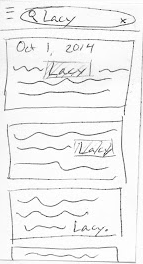 Lacy x
Oct 1, 2014
Lacy
Lacy
Lacy.